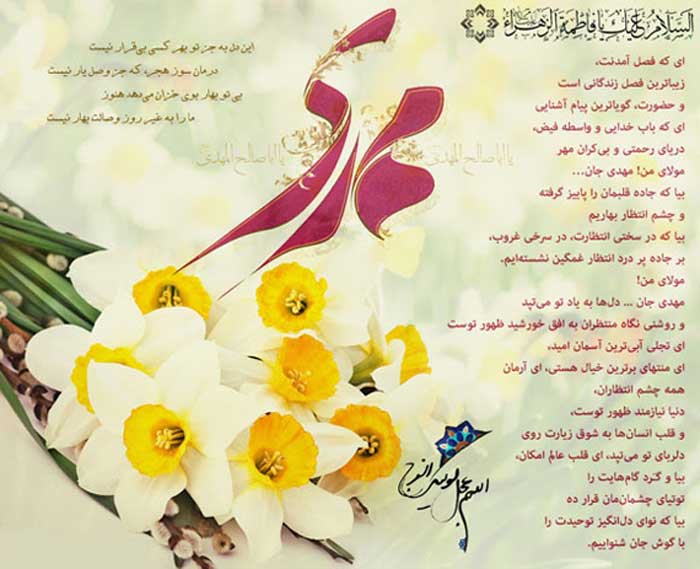 السَّلامُ عَلَیكِ یا فاطِمَةَ الزَّهراءُ
ای که فصل آمدنت،
زیباترین فصل زندگانی است
و حضورت، گویاترین پیام آشنایی
ای که باب خدایی و واسطه فیض،
دریای رحمتی و بی‌کران مهر
مولای من! مهدی جان...
بیا که جاده قلبمان را پاییز گرفته
و چشم انتظار بهاریم
بیا که در سختی انتظارت، در سرخی غروب،
بر جاده پر درد انتظار غمگین نشسته‌ایم.
مولای من!
مهدی جان ... دل‌ها به یاد تو می‌تپد
و روشنی نگاه منتظران به افق خورشید ظهور توست
ای تجلی آبی‌ترین آسمان امید،
ای منتهای برترین خیال هستی، ای آرمان
همه چشم انتظاران،
دنیا نیازمند ظهور توست،
و قلب انسان‌ها به شوق زیارت روی
دلربای تو می‌تپد، ای قلب عالم امکان،
بیا و گرد گام‌هایت را
توتیای چشممان‌مان قرار ده
بیا که نوای دل‌انگیز توحیدت را
با گوش جان شنواییم.
این دل به جز تو بهر کسی بی‌قرار نیست
درمان سوز هجر، که جز وصل یار نیست
بی تو بهار بوی خزان می‌دهد هنوز
ما را به غیر روز وصالت بهار نیست
مهدی
یا اباصالح المهدی
یا اباصالح المهدی
اللهم عجل لولیک الفرج